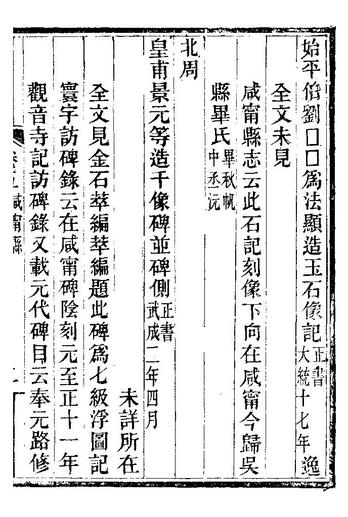 始平佫劉囗囗為法顯造玉石像記正書大統十七年逸
全文未見
咸甯縣志云此石記刻像下向在咸甯今歸吳
縣畢氏畢秋帆中丞沅
北周
皇甫景元等造千像碑並碑側正書武成二年四月
未詳所在
全文見金石萃編萃編題此碑為七級浮圖記
寰宇訪碑錄云在咸甯碑陰刻元至正十一年
觀音寺記訪碑錄又載元代碑目云奉元路修
咸甯縣